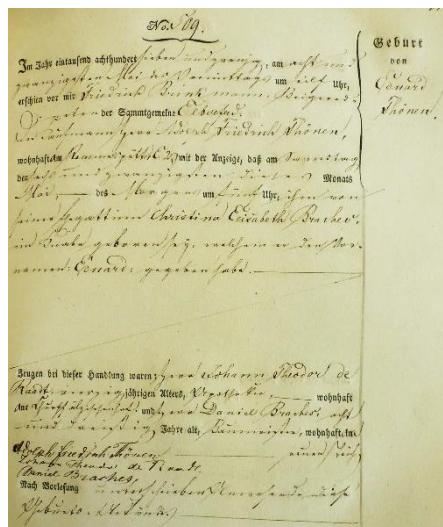 No. 509.
Geburt
von
Eduard
Thönen.
Im Jahr eintausend achthundert sieben und zwanzig, am acht und
zwanzigsten Mai des Vormittags um Uhr,
erschien vor mir Friedrich Brinkmann, Beigeord-
der Sammtgemeine Elberfeld.
Kaufmann Herr Adolph Friedrich Thönen,
wohnhaft mit der Anzeige, daß am Samstag
den sechs und zwanzigsten dieses Monats
Mai, des Morgens um fünf Uhr, ihm von
seiner Ehegattinn Christina Elisabeth Braches.
ein Knabe geboren sey, welchem er den Vor-
namen: Eduard: gegeben habe.
Zeugen bei dieser Handlung waren: Herr Johann Theodor de
Raadt, vierzig jährigen Alters, Apotheker, wohnhaft
und Herr Daniel Braches, acht
und dreißig Jahre alt, wohnhaft
Adolph Friedrich Thönen
Johann Theodor de Raadt.
Daniel Braches,
Nach Vorlesung unterschrieben Anwesende diese
Geburts-Urkunde.